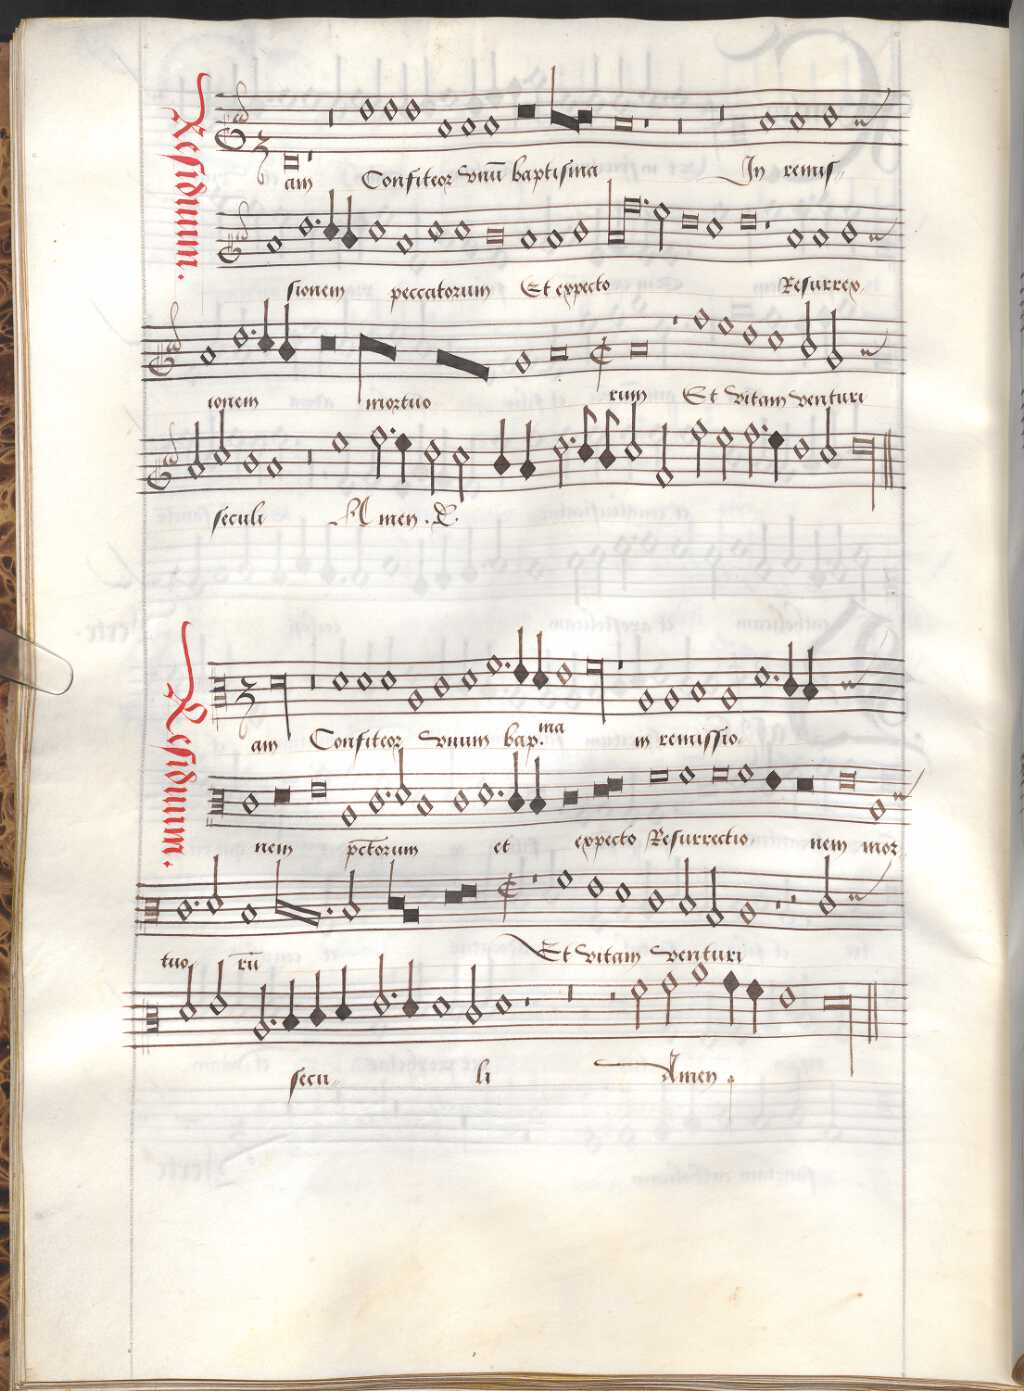 Residuum.
am Confiteor vnū baptisma In remis-
sionem peccatorum Et expecto Resurrex
ionem mortuo rum Et vitam venturi
seculi Amen .
Residuum.
am Confiteor vnum bap.ma in remissio
nem pctorum et expecto Resurrectio nem mor
tuo rū Et vitam venturi
secu- li Amen .